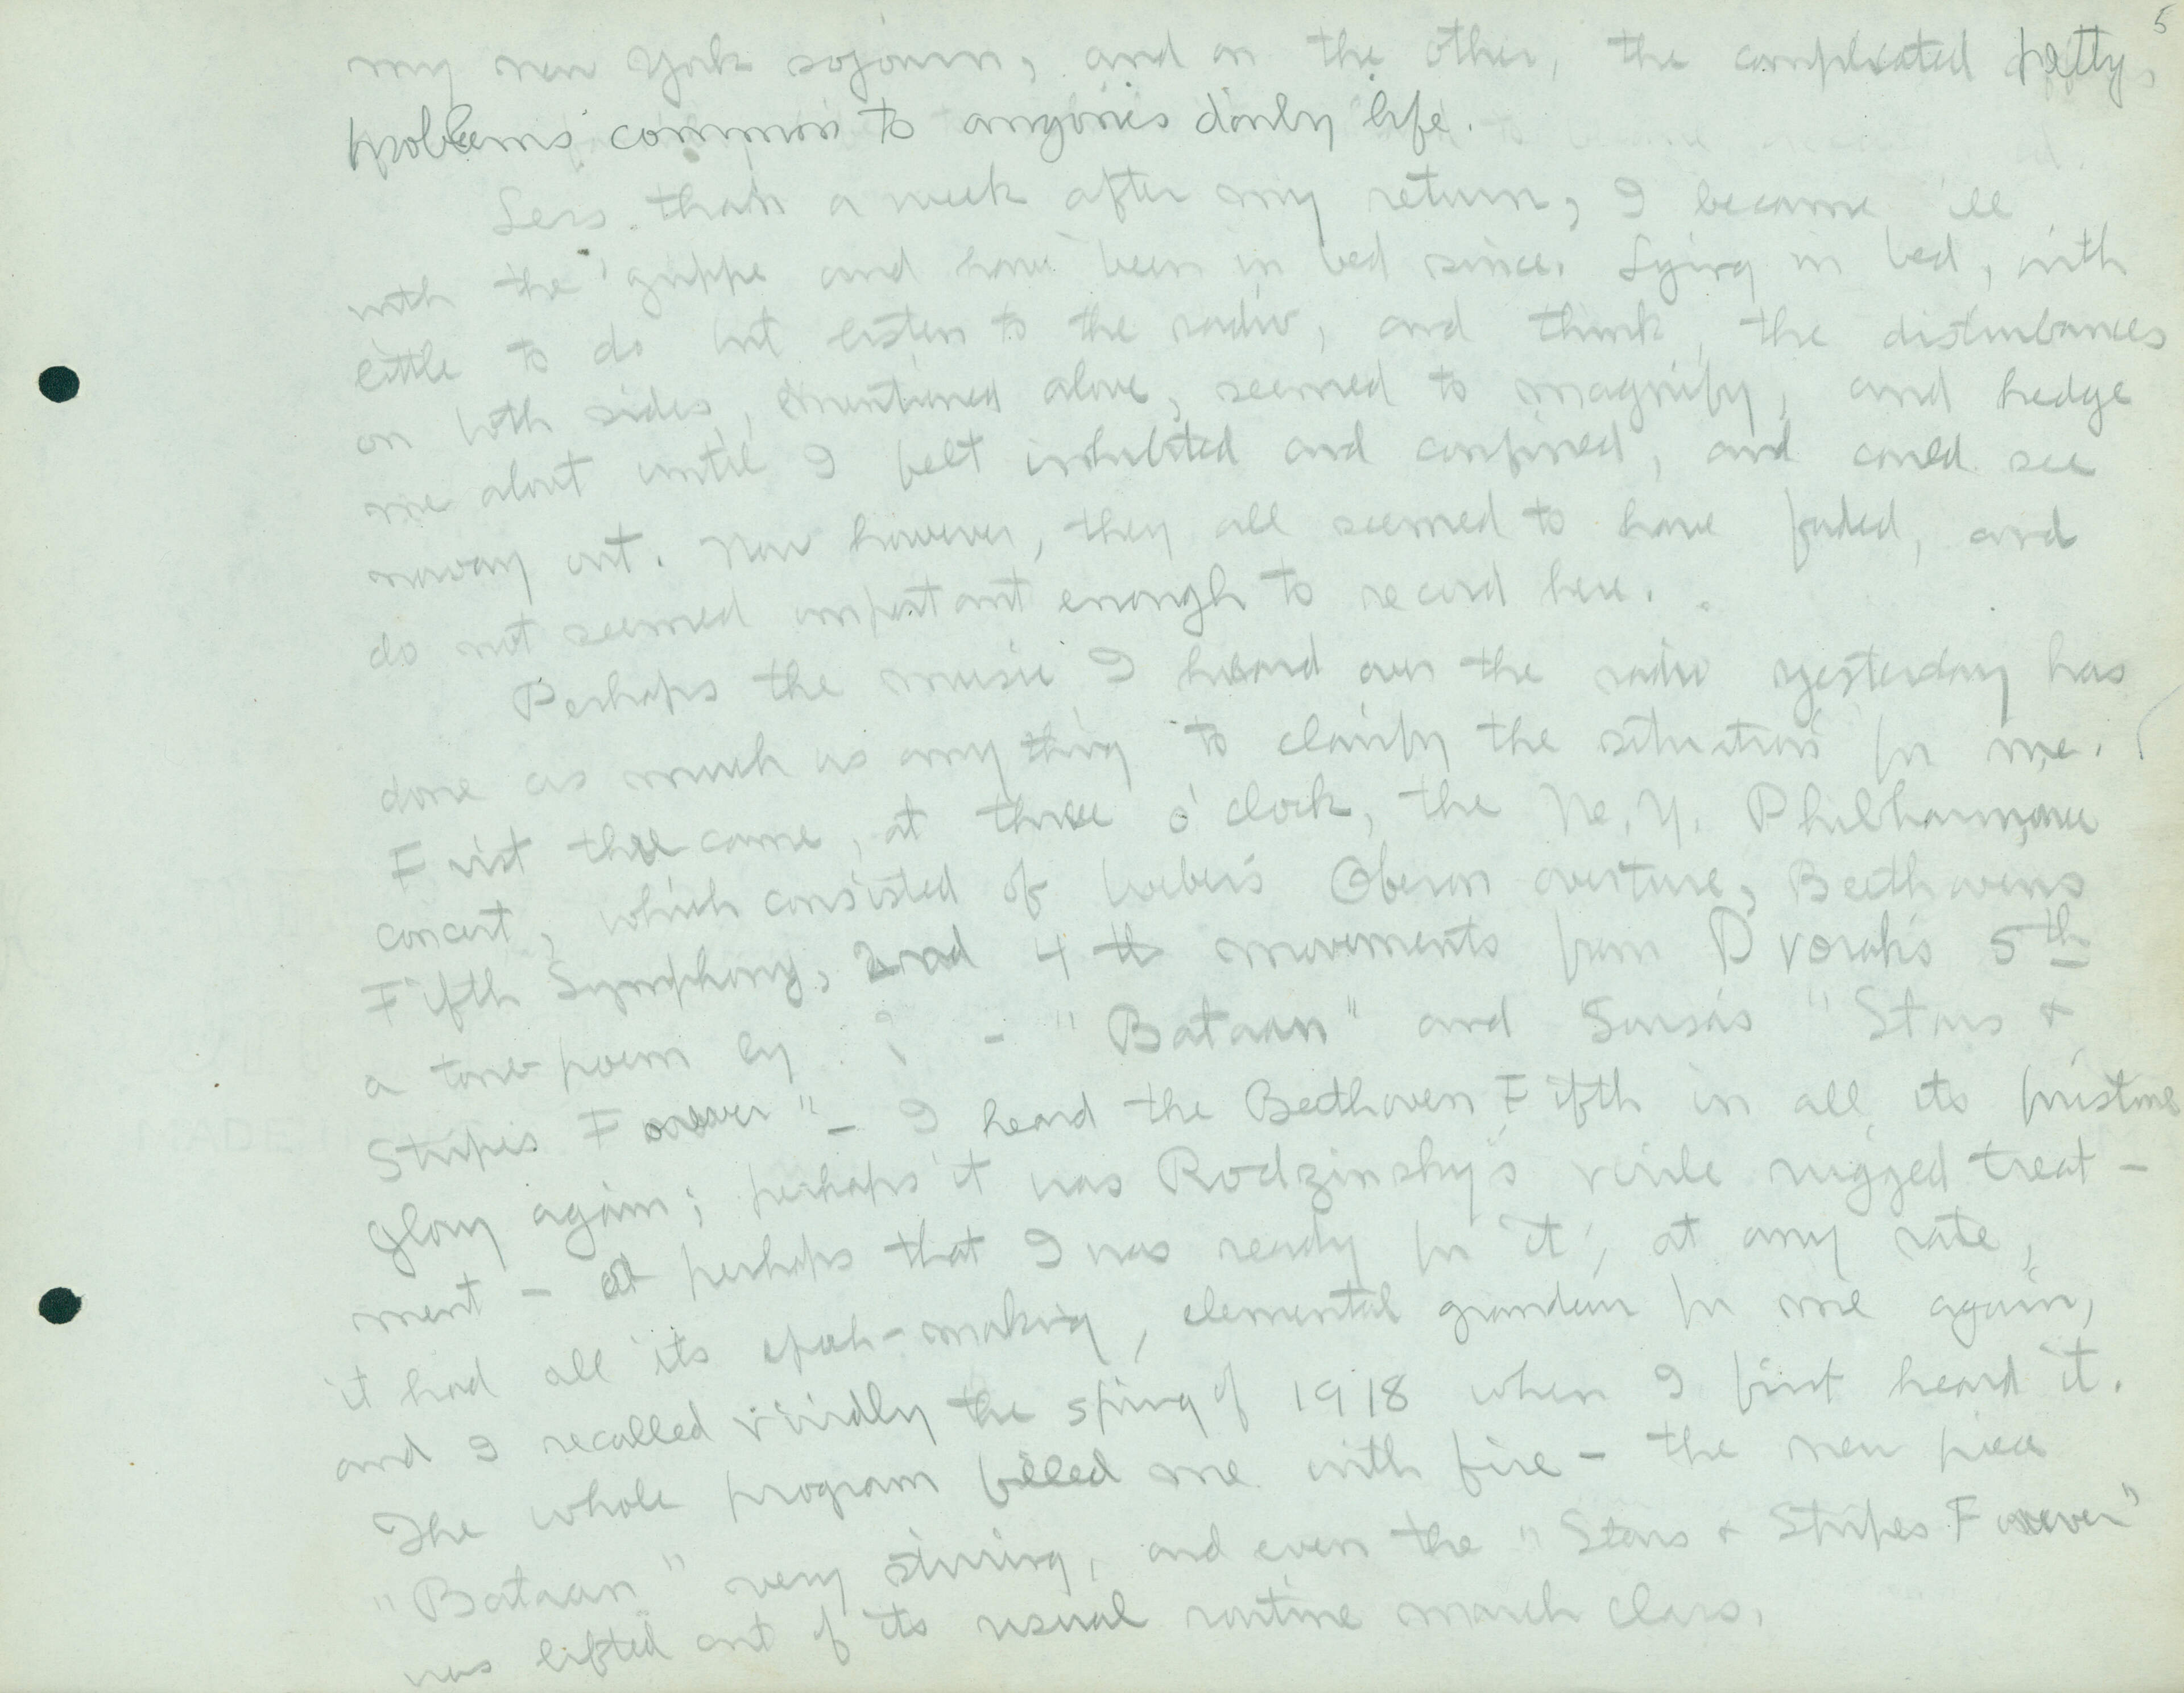 5
my New York sojourn, and on the other, the complicated petty,
problems common to anyone's daily life.
Less than a week after my return, I became ill
with the grippe and have been in bed since. Lying in bed, with
little to do but listen to the radio, and think, the disturbances
on both sides, mentioned above, seemed to magnify, and hedge
me about until I felt inhibited and confined, and could see
noway out. Now however, they all seemed to have faded, and
do not seemed important enough to record here.
Perhaps the music I heard over the radio yesterday has
done as much as anything to clarify the situation for me.
First there came, at three o'clock, the N.Y. Philharmonic
concert, which consisted of Weber's Oberon overture, Beethoven's
Fifth Symphony, 2nd 4th movements from Dvorak's 5th
a tone-poem by ? - "Bataan" and Sousa's "Stars &
Stripes Forever" - I heard the Beethoven Fifth in all its pristine
glory again; perhaps it was Rodzinsky's virile rugged treat-
ment - or perhaps that I was ready for it; at any rate,
it had all its epoch-making, elemental grandeur for me again,
and I recalled vividly the spring of 1918 when I first heard it.
The whole program filled me with fire - the new piece
"Bataan" very stirring, and even the "Stars & Stripes Forever"
was lifted out of its usual routine march class.